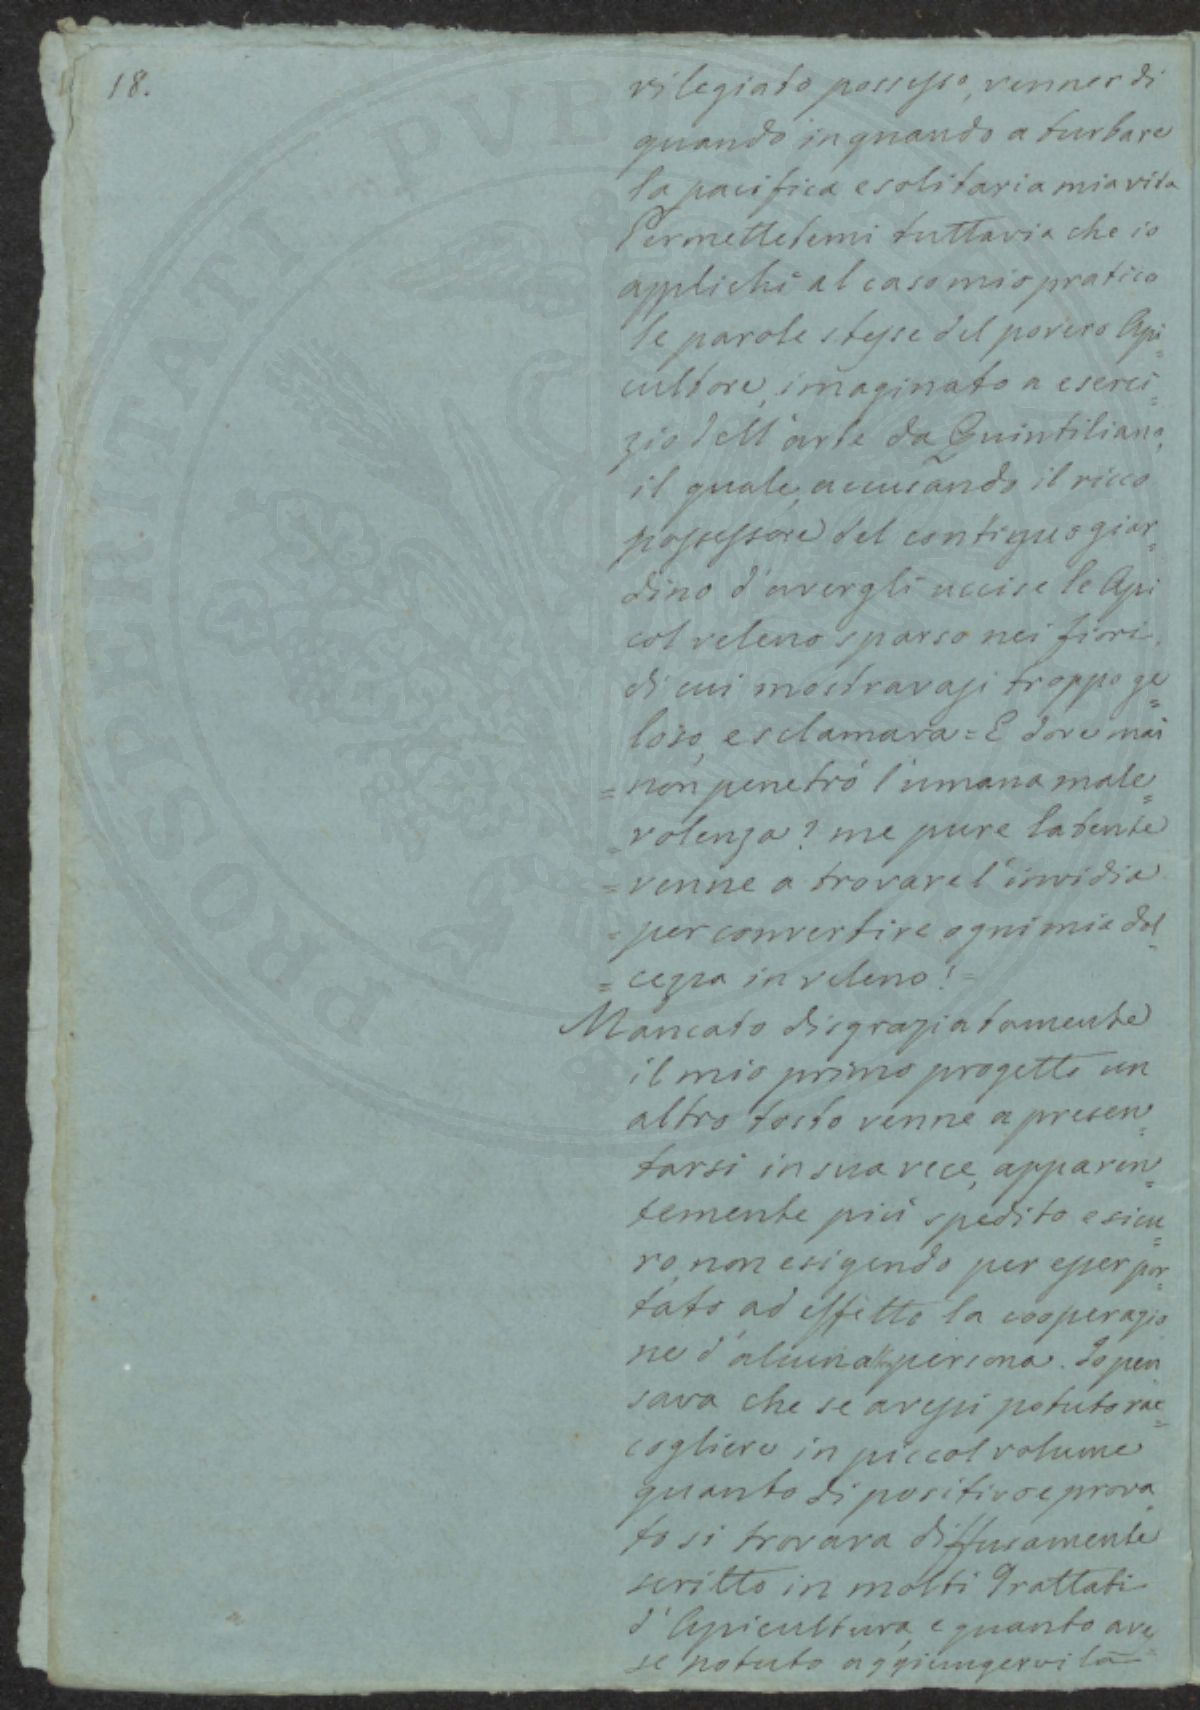 18.
vilegiato possesso, venner di
quando in quando a turbare
la pacifica e solitaria mia vita
Permettetemi tuttavia che io
applichi al caso mio pratico
le parole stesse del povero Api=
cultore, imaginato a eserci=
zio dell'arte da Quintiliano,
il quale, accusando il ricco
possessore del contiguo giar=
dino d'avergli uccise le Api
col veleno sparso nei fiori,
di cui mostravasi troppo ge=
loso, esclamava = E dove mai
= non penetrò l'umana male=
= volenza? me pure latente
= venne a trovare l'invidia
= per convertire ogni mia dol=
= cezza in veleno! =
Mancato disgraziatamente
il mio primo progetto un
altro tosto venne a presen=
tarsi in sua vece, apparen=
temente più spedito e sicu=
ro, non esigendo per esser por=
tato ad effetto la cooperazio
ne d'alcuna persona. Io pen
sava che se avessi potuto rac=
cogliere in piccol volume
quanto di positivo e prova
to si trovava diffusamente
scritto in molti Trattati
d'Apicultura, e quanto aves
se potuto aggiungervi la
PROSPERITATI PVBLICAE